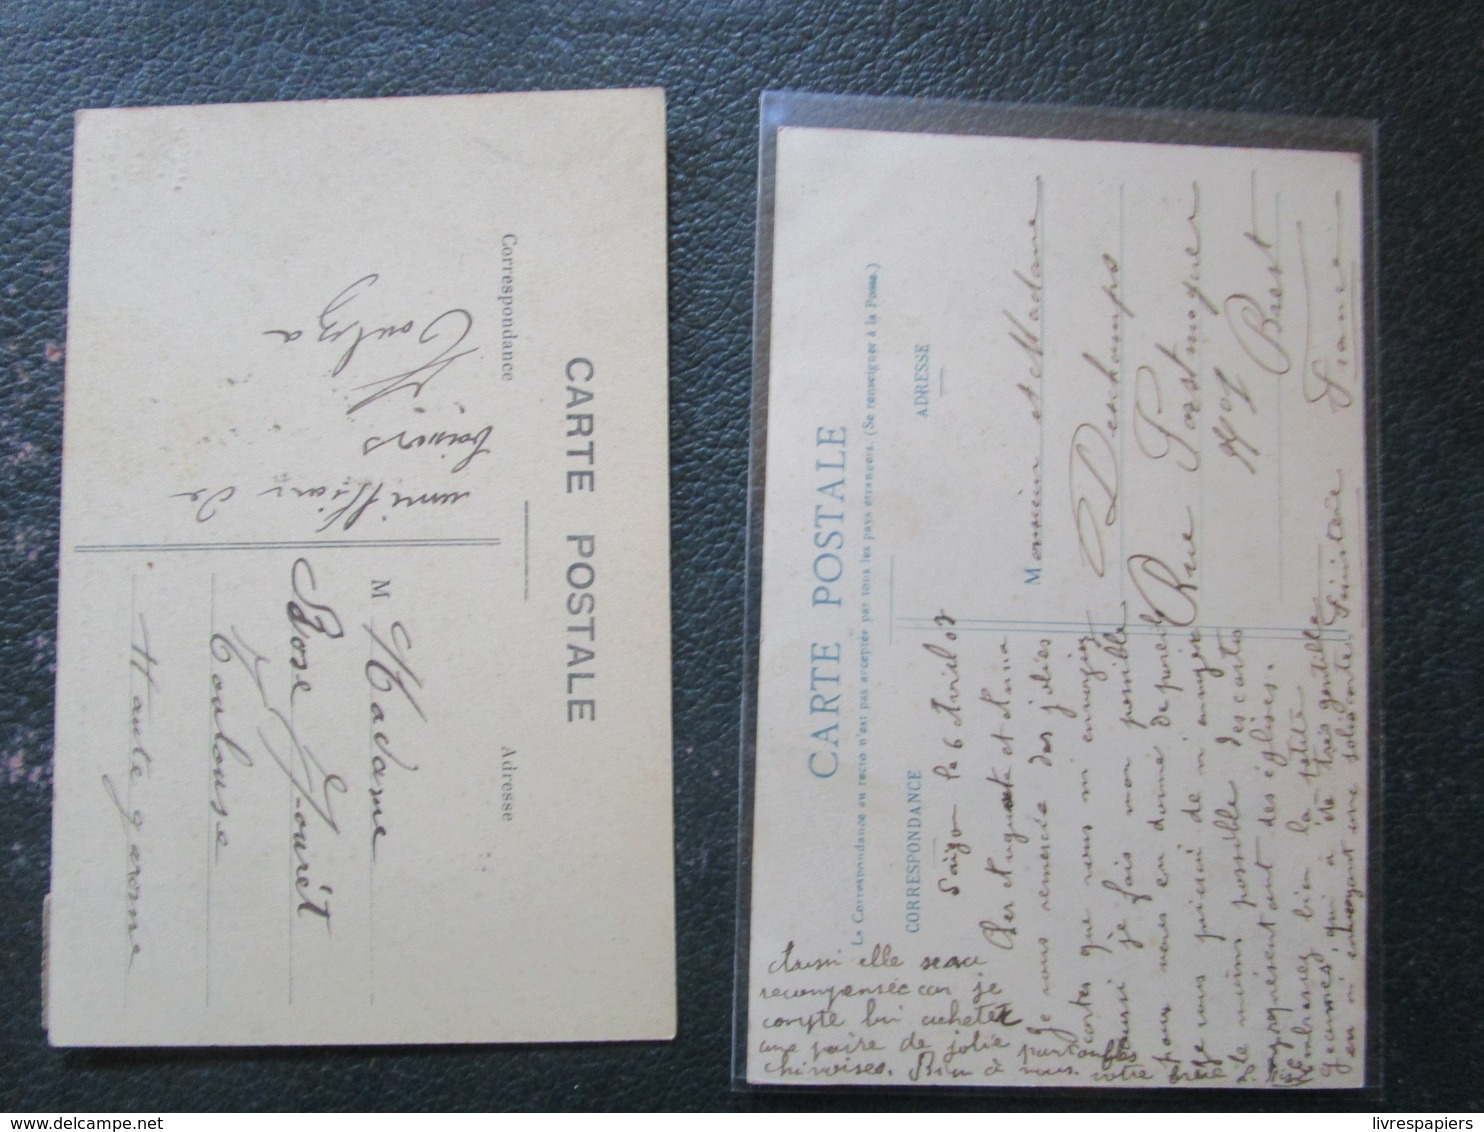 CARTE POSTALE
Correspondance
Adresse
un millier de
baisers
M Madame
Rose Jourét
Toulouse
Haute garonne
CARTE POSTALE
La Correspondance au recto n'est pas acceptée par tous les pays étrangers. (Se renseigner à la Poste.)
CORRESPONDANCE
ADRESSE
Saigon le 6 Avril 07
Cher Auguste et Anna
Je vous remercie des jolies
cartes que vous m'envoyiez
aussi je fais mon possible
pour vous en donné de pareil
je vous prierai de m'envoyer
le moins possible des cartes
représentant des églises.
Embrassez bien la petite
qui a été très gentille
en m'envoyant une jolie carte
Aussi elle sera
recompensée car je
compte lui acheter
une paire de jolie
chinoises. Bien à vous
Monsieur et Madame
Deschamps
Rue Portmoguer
Brest
Finistère France
livrespapiers